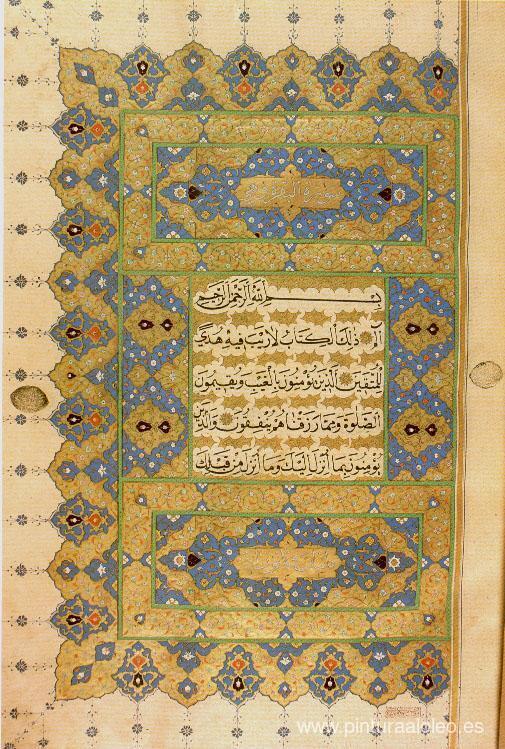 سورة البقرة
بسم الله الرحمن الرحيم
الٓمٓ ذَٰلِكَ ٱلْكِتَابُ لَا رَيْبَ فِيهِ هُدًى
لِلْمُتَّقِينَ ٱلَّذِينَ يُؤْمِنُونَ بِالْغَيْبِ وَيُقِيمُونَ
ٱلصَّلَوٰةَ وَمِمَّا رَزَقْنَاهُمْ يُنْفِقُونَ وَٱلَّذِينَ
يُؤْمِنُونَ بِمَا أُنْزِلَ إِلَيْكَ وَمَا أُنْزِلَ مِنْ قَبْلِكَ
www.pinturaaloleo.es